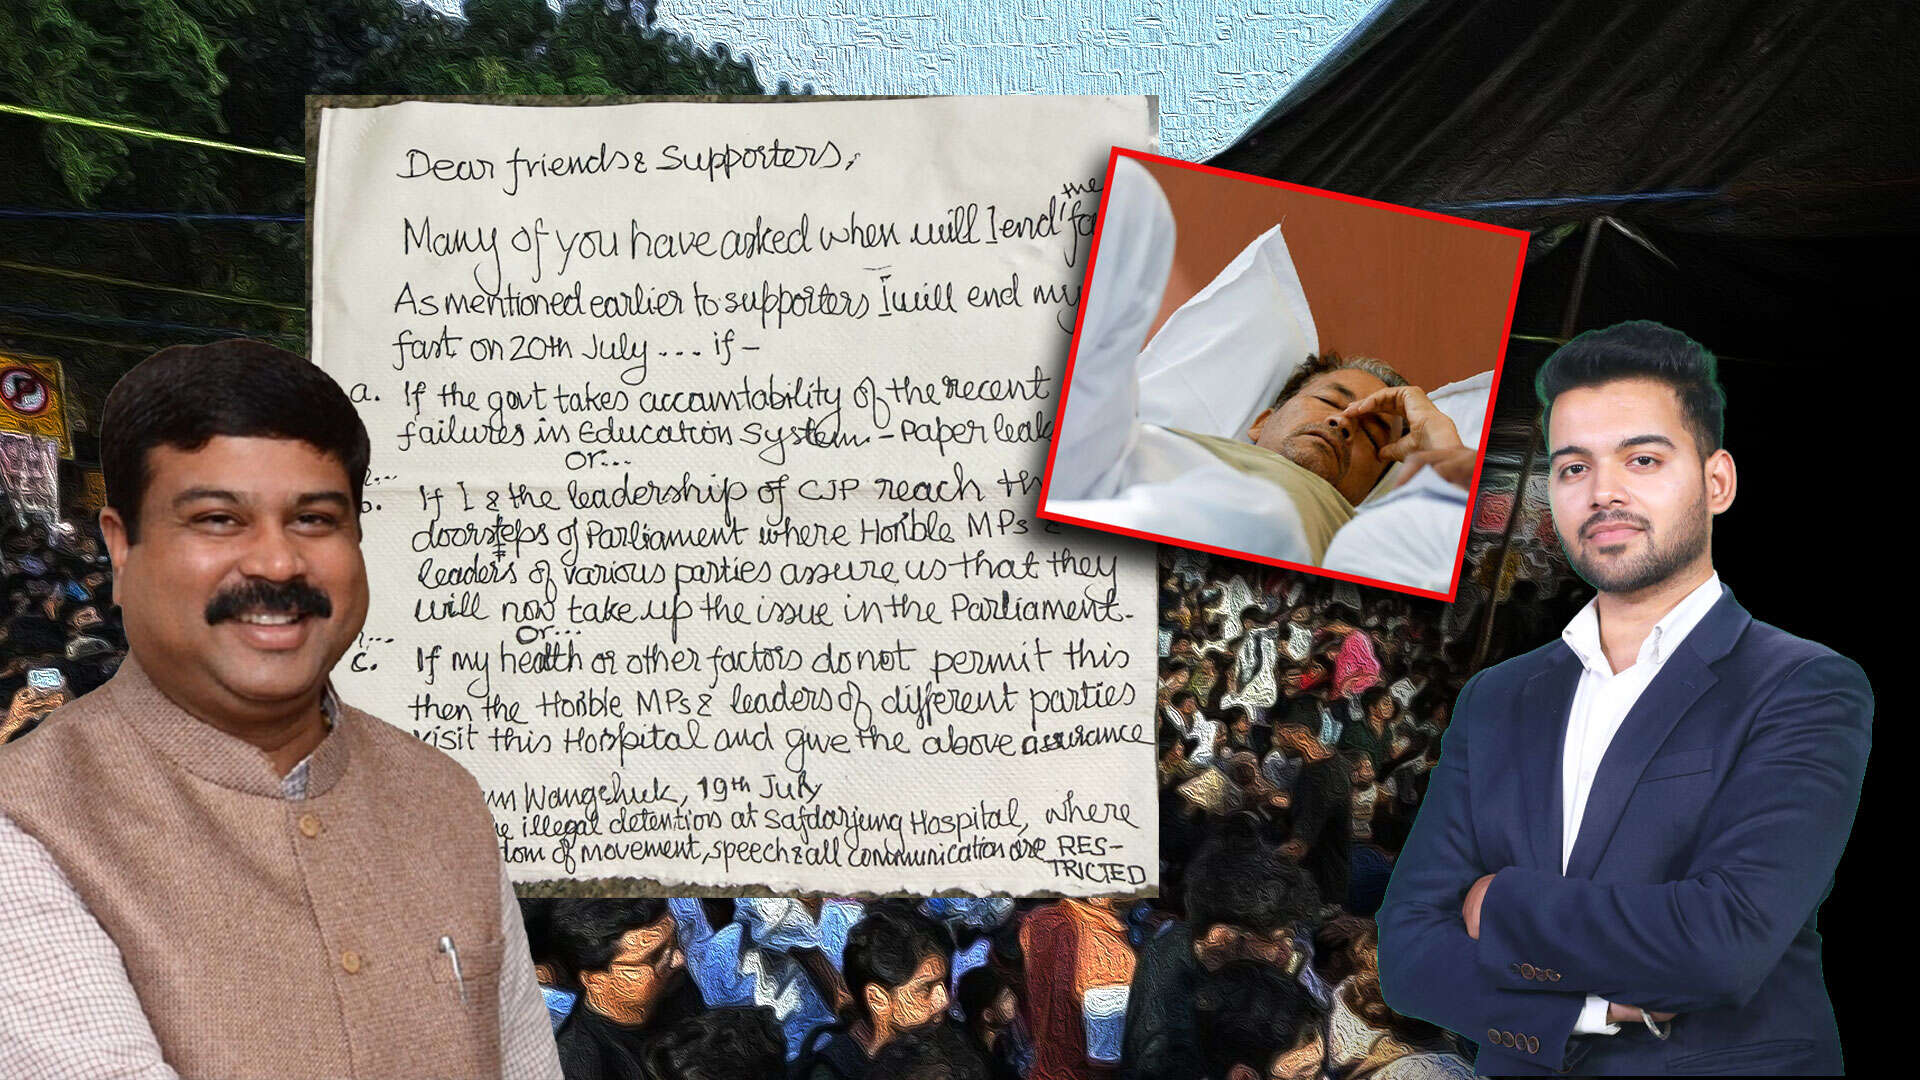 Dear friends & Supporters,
Many of you have asked when will I end the
As mentioned earlier to supporters I will end my
fast on 20th July .... if -
a. If the govt takes accountability of the recent
failures in Education System. - Paper leak
or...
If I & the leadership of CJP reach
doorsteps of Parliament where Hon'ble MPs &
leaders of various parties assure us that they
will now take up the issue in the Parliament.
or...
c. If my health or other factors do not permit this
then the Hon'ble MPs & leaders of different parties
visit this Hospital and give the above assurance
Wangchuk, 19th July
illegal detention at Safdarjung Hospital, where
of movement, speech & all communication are RES-
TRICTED